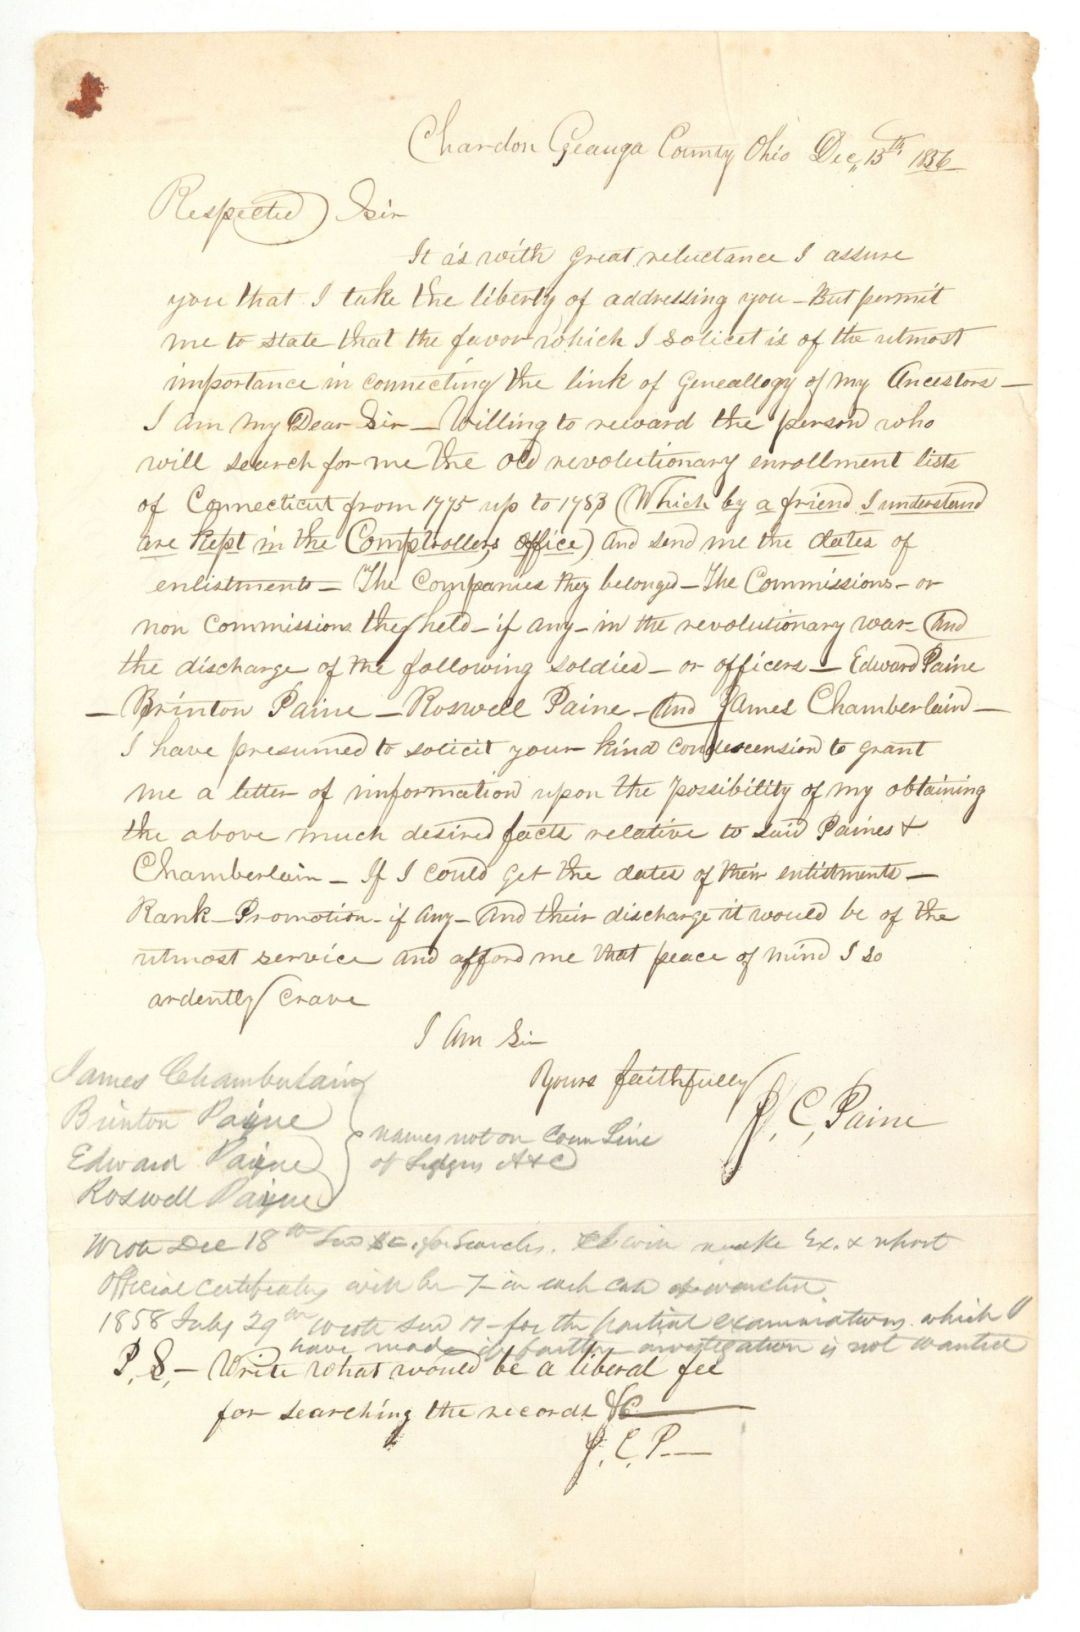 Chardon Geauga County Ohio Dec,, 13th 1856
Respected Sir
It is with great reluctance I assure
you that I take the liberty of addressing you – But permit
me to state that the favor which I solicet is of the utmost
importance in connecting the link of Geneallogy of my Ancestors –
I am my Dear Sir – Willing to reward the person who
will search for me the old revolutionary enrollment lists
of Connecticut from 1775 up to 1783 (Which by a friend I understand
are kept in the Comptrollers office) and send me the dates of
enlistments – The Companies they belonged – The Commissions – or
non commissions they held – if any – in the revolutionary war – And
the discharge of the following soldies – or officers – Edward Paine
– Brinton Paine – Roswell Paine – And James Chamberlain –
I have presumed to solicit your kind condescension to grant
me a letter of imformation upon the possibility of my obtaining
the above much desired facts relative to said Paines &
Chamberlain – If I could get the dates of their enlistments –
Rank – Promotion – if any – And their discharge it would be of the
utmost service and afford me that peace of mind I so
ardently crave
I Am Sir
Yours faithfully
J. C. Paine
James Chamberlain
Brinton Payne
Edward Payne
Roswell Payne
names not on Conn Line
of Ledgers A & C
Wrote Dec 18th for Searches. will make Ex. & report
Official Certificates will be in each case if wanted
1858 July 29th Wrote for the partial examinations which
have made if further investigation is not wanted
P. S. – Write what would be a liberal fee
for searching the records &C
J. C. P –